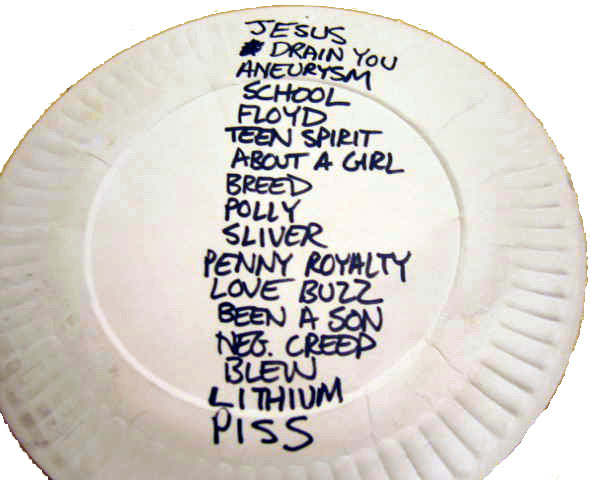 JESUS
DRAIN YOU
ANEURYSM
SCHOOL
FLOYD
TEEN SPIRIT
ABOUT A GIRL
BREED
POLLY
SLIVER
PENNY ROYALTY
LOVE BUZZ
BEEN A SON
NEG. CREEP
BLEW
LITHIUM
PISS